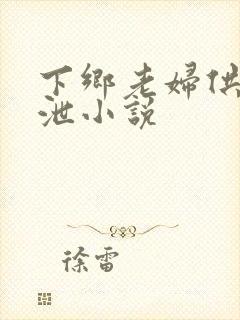 下鄉老婦供
泄小說
徐雷